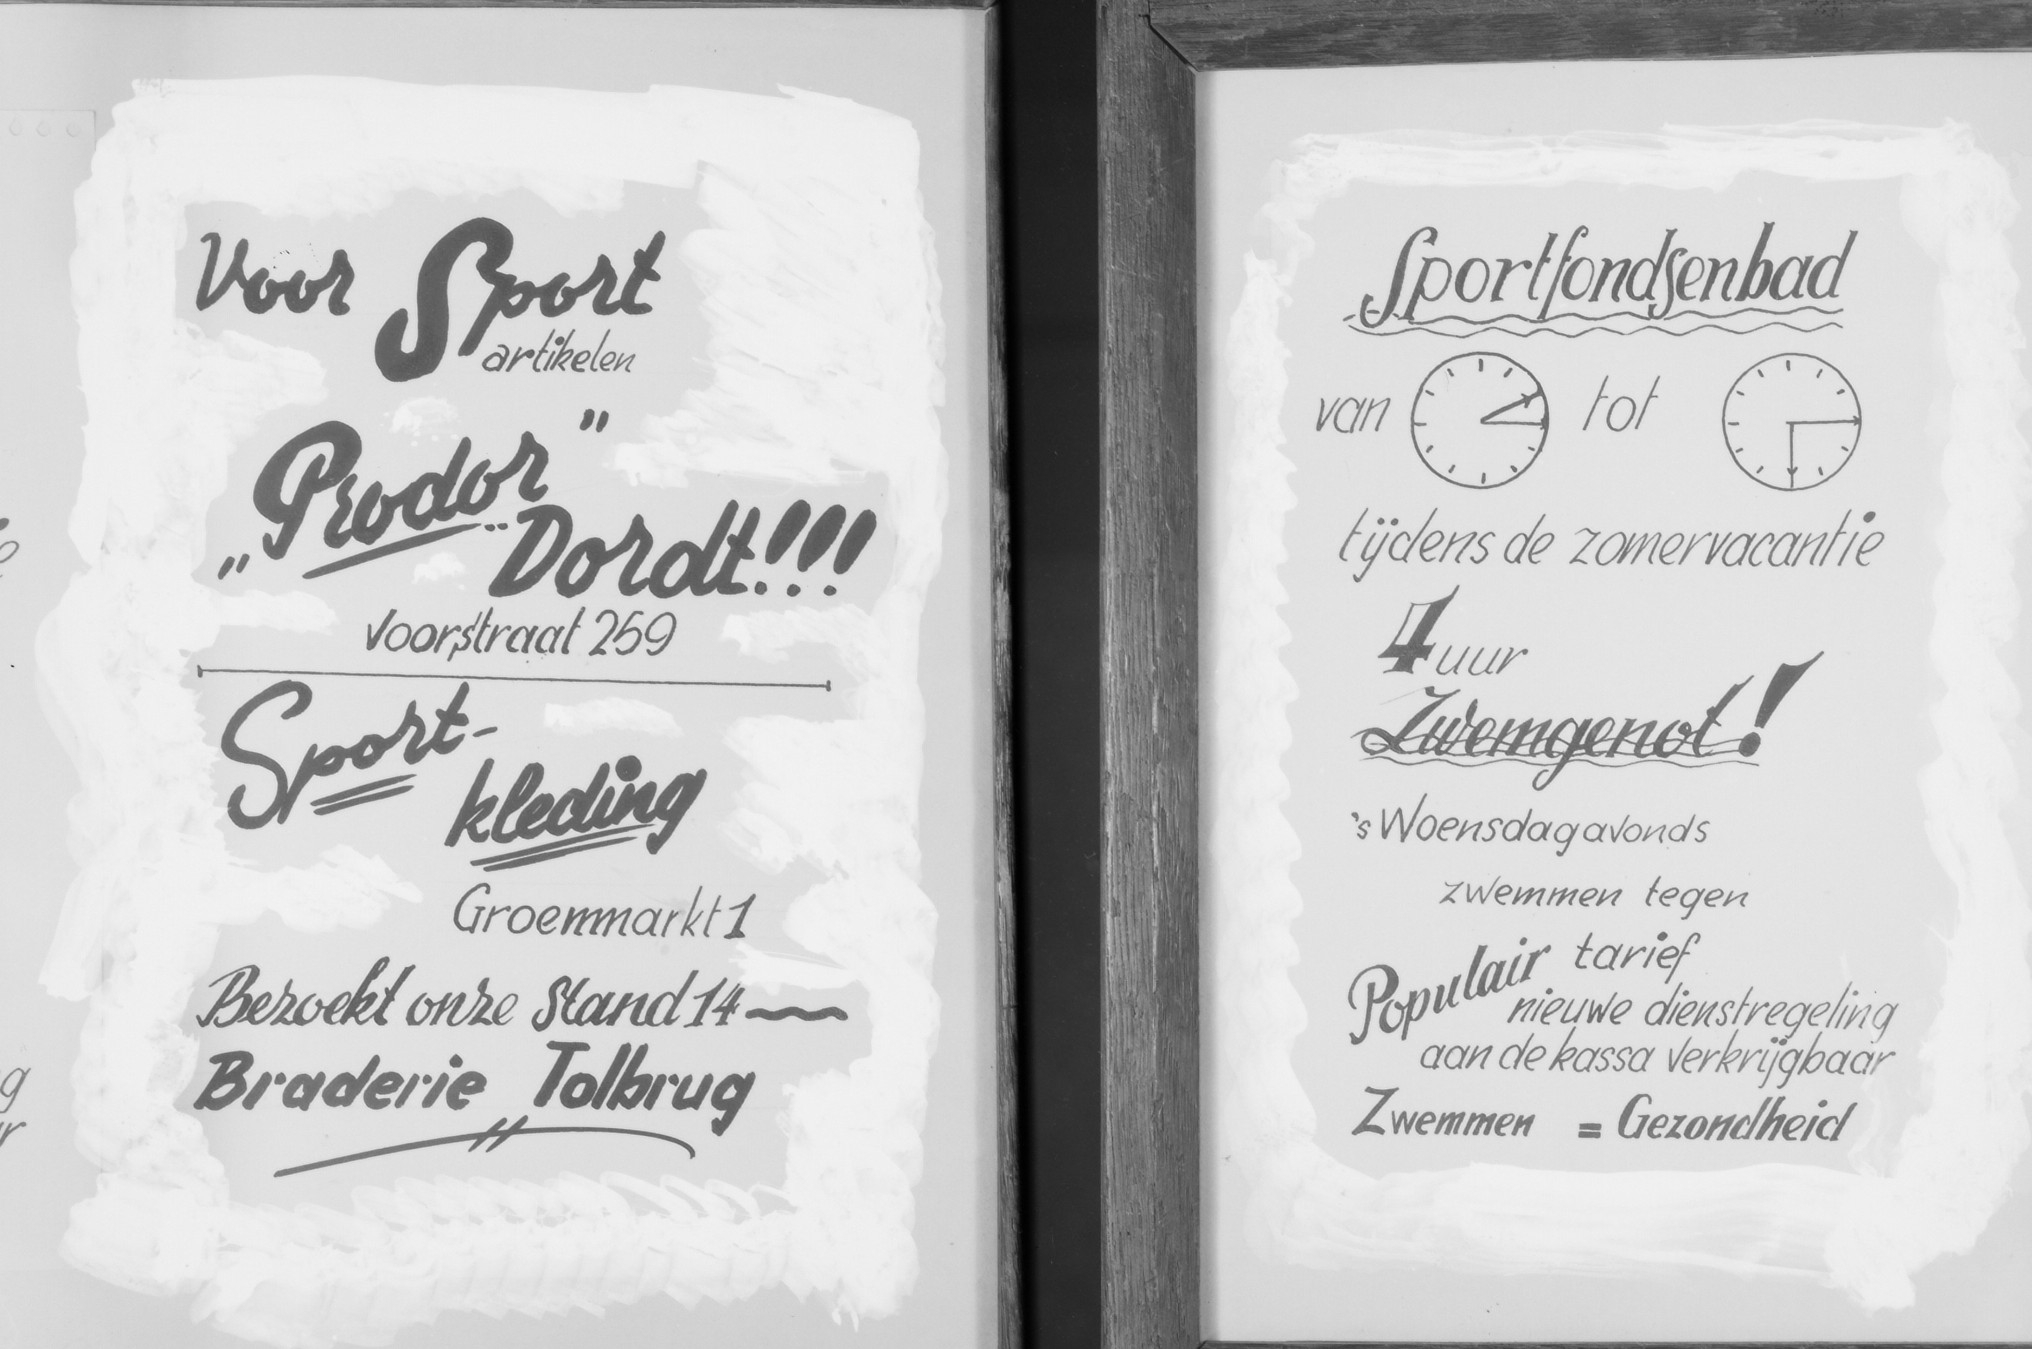 Voor Sport
artikelen
„Prodor"
Dordt!!!
Voorstraat 259
Sport-
kleding
Groenmarkt 1
Bezoekt onze Stand 14
Braderie Tolbrug
Sportfondsenbad
van tot
tijdens de zomervacantie
4 uur
Zwemgenot!
's Woensdagavonds
zwemmen tegen
Populair tarief
nieuwe dienstregeling
aan de kassa verkrijgbaar
Zwemmen = Gezondheid